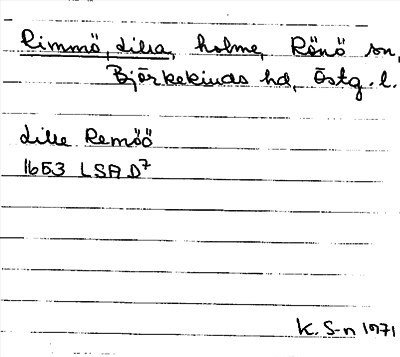 Rimmö, Lilla, holme, Rönö sn,
Björkekinds hd, Östg. l.
Lille Remöö
1653 LSA D7
K. S-n 1971